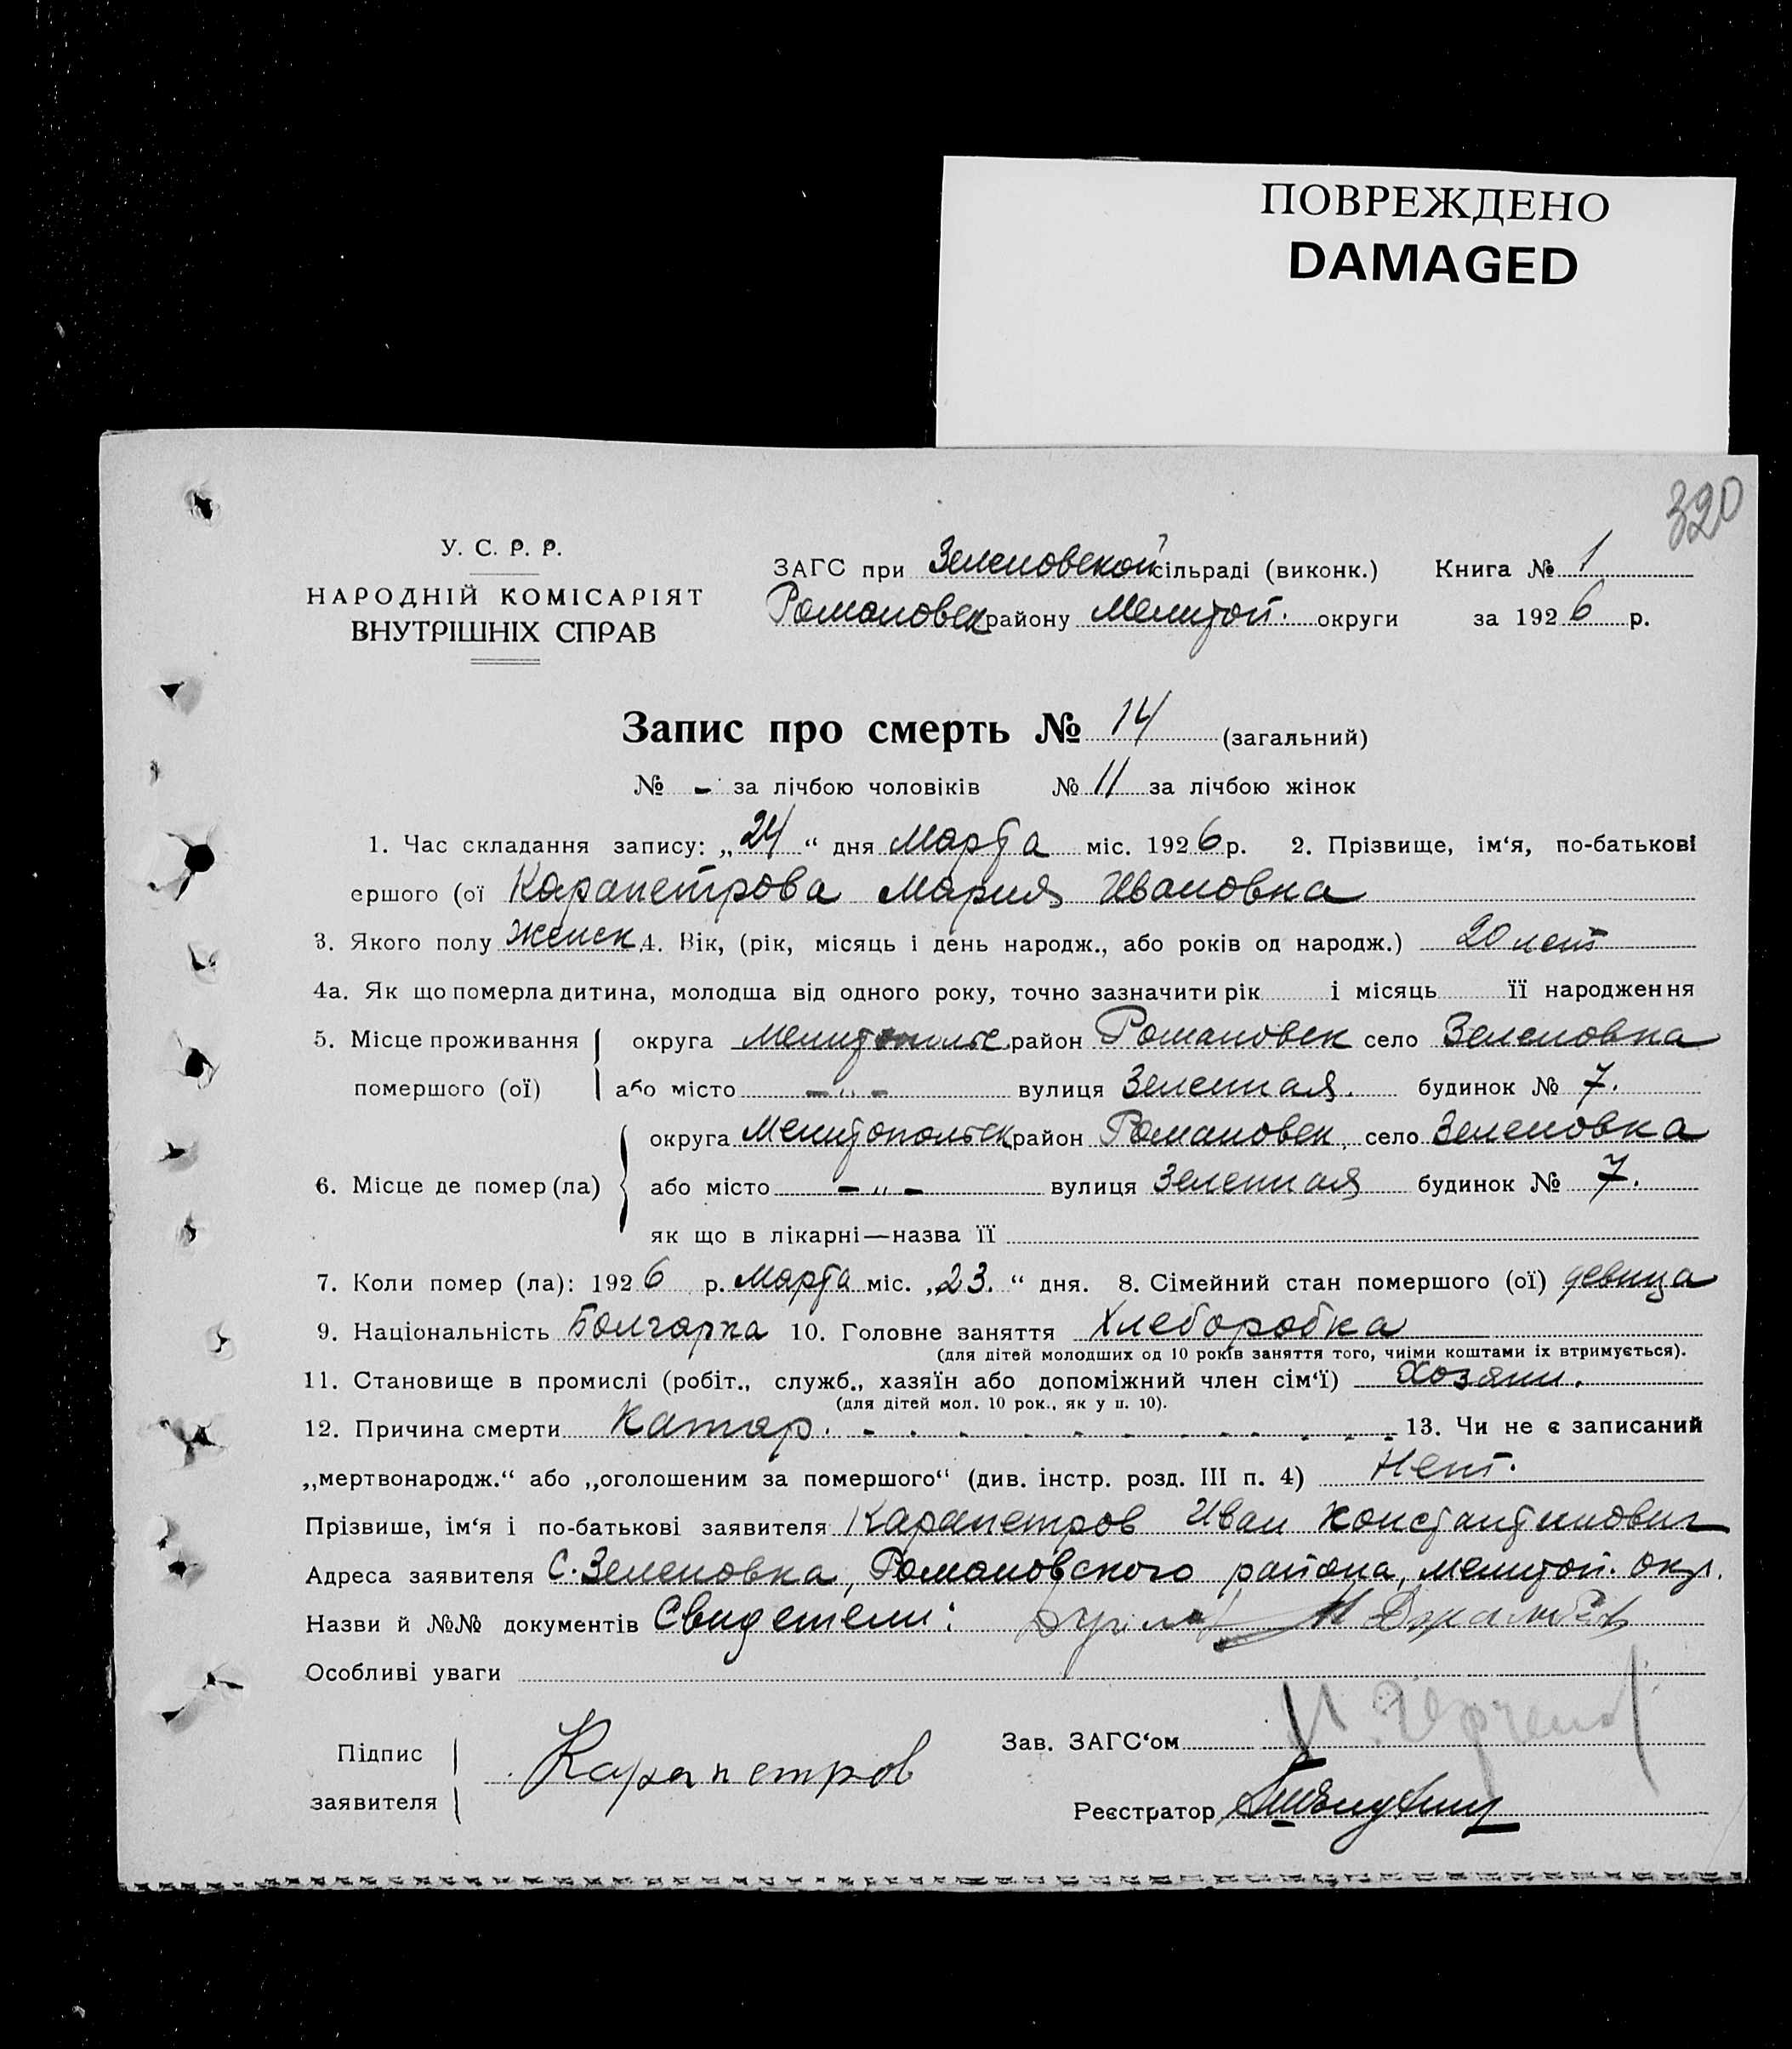 ПОВРЕЖДЕНО
DAMAGED
320
У. С. Р. Р.
НАРОДНІЙ КОМІСАРІЯТ
ВНУТРІШНІХ СПРАВ
ЗАГС при Зеленовской сільраді (виконк.) Книга № 1
Романовск району Мелитоп. округи за 1926 р.
Запис про смерть № 14 (загальний)
№ - за лічбою чоловіків № 11 за лічбою жінок
1. Час складання запису: „24“ дня Марта міс. 1926 р. 2. Прізвище, ім‘я, по-батькові
ершого (ої Карапетрова Мария Ивановна
3. Якого полу женск 4. Вік, (рік, місяць і день народж., або років од народж.) 20 лет
4а. Як що померла дитина, молодша від одного року, точно зазначити рік і місяць її народження
5. Місце проживання округа Мелитопольс район Романовск село Зеленовка
помершого (ої) або місто -„- вулиця Зеленная. будинок № 7.
округа Мелитопольск район Романовск, село Зеленовка
6. Місце де помер (ла) або місто -„- вулиця Зеленная будинок № 7.
як що в лікарні—назва її
7. Коли помер (ла): 1926 р. Марта міс. „23.“ дня. 8. Сімейний стан помершого (ої) девица
9. Національність Болгарка 10. Головне заняття Хлеборобка
(для дітей молодших од 10 років заняття того, чиїми коштами їх втримується).
11. Становище в промислі (робіт., служб., хазяїн або допоміжний член сім‘ї) Хозяин.
(для дітей мол. 10 рок., як у п. 10).
12. Причина смерти Катар. 13. Чи не є записаний
„мертвонародж.“ або „оголошеним за помершого“ (див. інстр. розд. III п. 4) Нет.
Прізвише, ім‘я і по-батькові заявителя Карапетров Иван Константинович
Адреса заявителя С. Зеленовка, Романовского района, Мелитоп. окр.
Назви й №№ документів Свидетели:
Особливі уваги
Підпис
заявителя
Карапетров
Зав. ЗАГС‘ом
Реєстратор